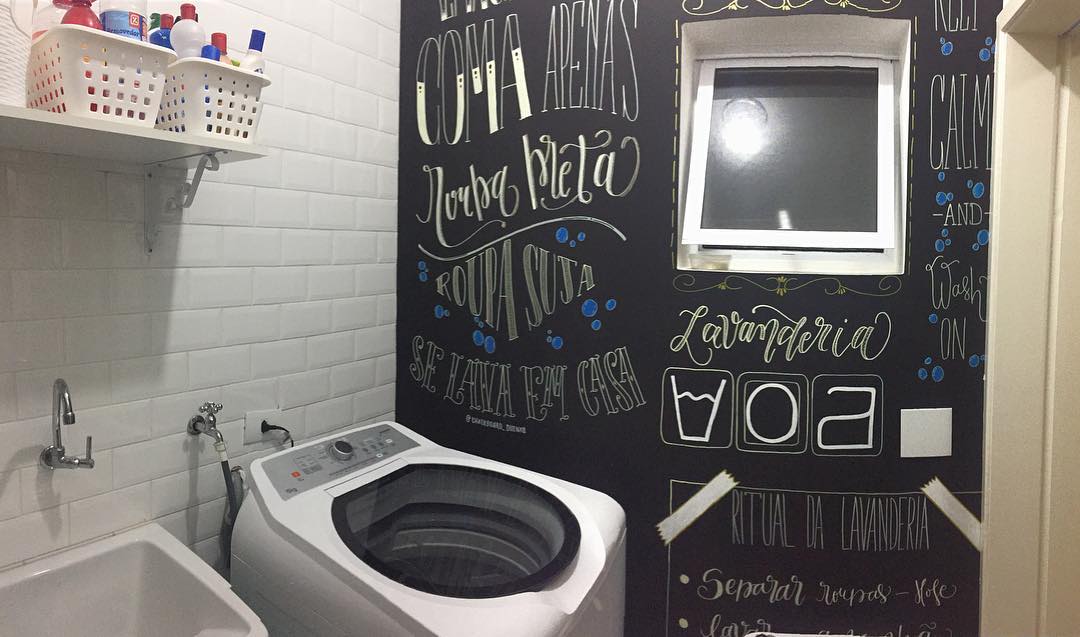 COMA APENAS
roupa preta
ROUPA SUJA
SE LAVA EM CASA
Lavanderia
RITUAL DA LAVANDERIA
Separar roupas - Hoje
Lavar
KEEP
CALM
-AND-
Wash
ON